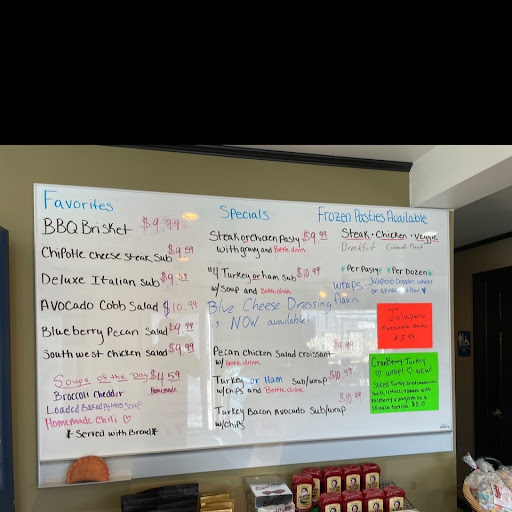 Favorites
BBQ Brisket $9.99
Chipotle cheese steak Sub $9.59
Deluxe Italian Sub $9.59
Avocado Cobb Salad $10.99
Blueberry Pecan Salad $9.99
South west chicken salad $9.99
Soups of the Day $4.59
Homemade
Broccoli Cheddar
Loaded Baked Potato Soup
Homemade Chili ♡
* Served with Bread *
Specials
Steak or chicken Pasty $9.99
with gravy and Bottle drink
Turkey or ham Sub $10.99
w/ Soup and Bottle drink
Blue Cheese Dressing
is NOW available!
Pecan chicken Salad croissant $9.99
w/ bottle drink
Turkey or Ham Sub/wrap $10.99
w/ chips and Bottle drink
$10.99
Turkey Bacon Avocado Sub/wrap
w/ chips
Frozen Pasties Available
Steak • Chicken • Veggie
Breakfast
* Per Pasty * * Per Dozen *
wraps Jalapeno Cheddar, wheat
flavors
Jalapeno
Cranberry Turkey
♡ wrap! ♡ NEW!